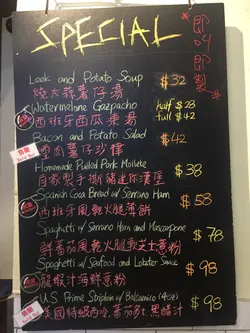 SPECIAL
即叫即製
Leek and Potato Soup $32
燒大蒜薯仔湯
Watermelone Gazpacho half $28
西班牙西瓜凍湯 full $42
Bacon and Potato Salad $42
煙肉薯仔沙律
Homemade Pulled Pork Mollete $38
自家製手撕豬迷你漢堡
Spanish Coca Bread w/ Serrano Ham $58
西班牙風乾火腿薄餅
Spaghetti w/ Serrano Ham and Mascarpone $78
鮮蕃茄風乾火腿軟芝士意粉
Spaghetti w/ Seafood and Lobster Sauce $98
龍蝦汁海鮮意粉
U.S Prime Striploin w/ Balsamico (4oz) $98
美國特級西冷, 蕃茄, 黑醋汁